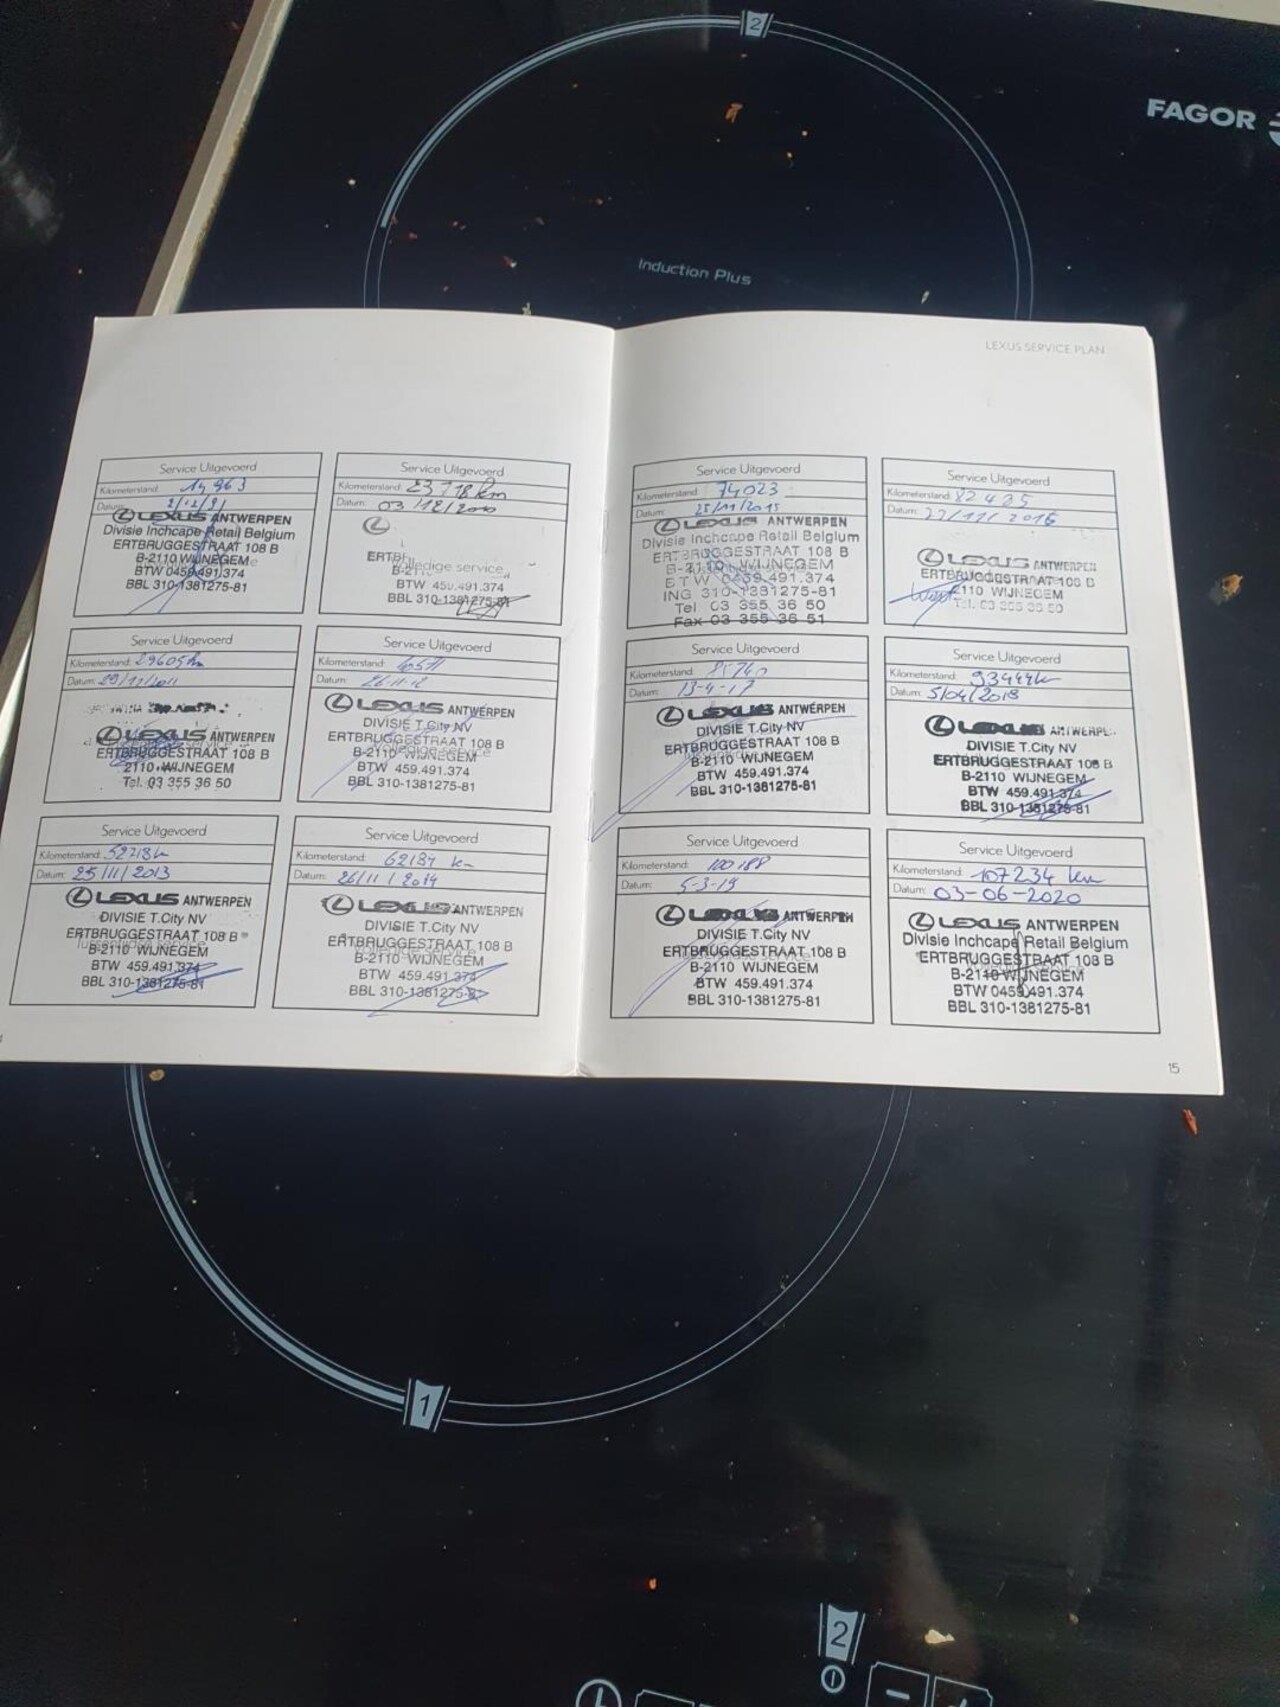 2
FAGOR
Induction Plus
LEXUS SERVICE PLAN
Service Uitgevoerd
Kilometerstand: 14963
Datum:
LEXUS ANTWERPEN
Divisie Inchcape Retail Belgium
ERTBRUGGESTRAAT 108 B
B-2110 WIJNEGEM
BTW 0459.491.374
BBL 310-1381275-81
Service Uitgevoerd
Kilometerstand: 23718 km
Datum: 03/12/2010
volledige service
BTW 459.491.374
BBL 310-1381275-81
Service Uitgevoerd
Kilometerstand: 29605 km
Datum: 29/11/2011
LEXUS ANTWERPEN
ERTBRUGGESTRAAT 108 B
2110 WIJNEGEM
Tel. 03 355 36 50
Service Uitgevoerd
Kilometerstand:
Datum: 26-11-12
LEXUS ANTWERPEN
DIVISIE T.City NV
ERTBRUGGESTRAAT 108 B
B-2110 WIJNEGEM
BTW 459.491.374
BBL 310-1381275-81
Service Uitgevoerd
Kilometerstand: 52718 km
Datum: 25/11/2013
LEXUS ANTWERPEN
DIVISIE T.City NV
ERTBRUGGESTRAAT 108 B
B-2110 WIJNEGEM
BTW 459.491.374
BBL 310-1381275-81
Service Uitgevoerd
Kilometerstand: 62184 km
Datum: 26/11/2014
LEXUS ANTWERPEN
DIVISIE T.City NV
ERTBRUGGESTRAAT 108 B
B-2110 WIJNEGEM
BTW 459.491.374
BBL 310-1381275-81
Service Uitgevoerd
Kilometerstand: 74023
Datum: 25/11/2015
LEXUS ANTWERPEN
Divisie Inchcape Retail Belgium
ERTBRUGGESTRAAT 108 B
B-2110 WIJNEGEM
BTW 0459.491.374
ING 310-1381275-81
Tel 03 355 36 50
Fax 03 355 36 51
Service Uitgevoerd
Kilometerstand: 82425
Datum:
LEXUS ANTWERPEN
ERTBRUGGESTRAAT 108 B
2110 WIJNEGEM
Tel. 03 355 36 50
Service Uitgevoerd
Kilometerstand: 85740
Datum: 13-4-17
LEXUS ANTWERPEN
DIVISIE T.City NV
ERTBRUGGESTRAAT 108 B
B-2110 WIJNEGEM
BTW 459.491.374
BBL 310-1381275-81
Service Uitgevoerd
Kilometerstand: 93444 km
Datum: 5/04/2018
LEXUS ANTWERPEN
DIVISIE T.City NV
ERTBRUGGESTRAAT 108 B
B-2110 WIJNEGEM
BTW 459.491.374
BBL 310-1381275-81
Service Uitgevoerd
Kilometerstand: 100188
Datum: 5-3-19
LEXUS ANTWERPEN
DIVISIE T.City NV
ERTBRUGGESTRAAT 108 B
B-2110 WIJNEGEM
BTW 459.491.374
BBL 310-1381275-81
Service Uitgevoerd
Kilometerstand: 107234 km
Datum: 03-06-2020
LEXUS ANTWERPEN
Divisie Inchcape Retail Belgium
ERTBRUGGESTRAAT 108 B
B-2110 WIJNEGEM
BTW 0459.491.374
BBL 310-1381275-81
15
1
2